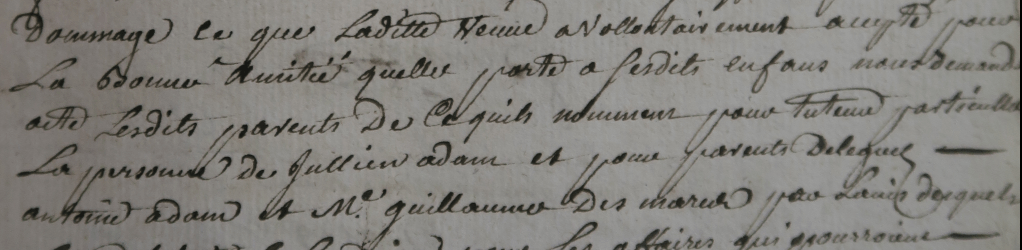 Dommage ce que Laditte Veuve a Vollontairement accepté pour
La bonne Amitié quelle porte a sesdits enfans nous Demand
acte Lesdits parents De Ce quils nomment pour tuteur particullier
La personne de Jullien adam et pour parents Delegues
antoine adam et Me guillaume Des marest par Lavis desquels
les affaires qui pourroient